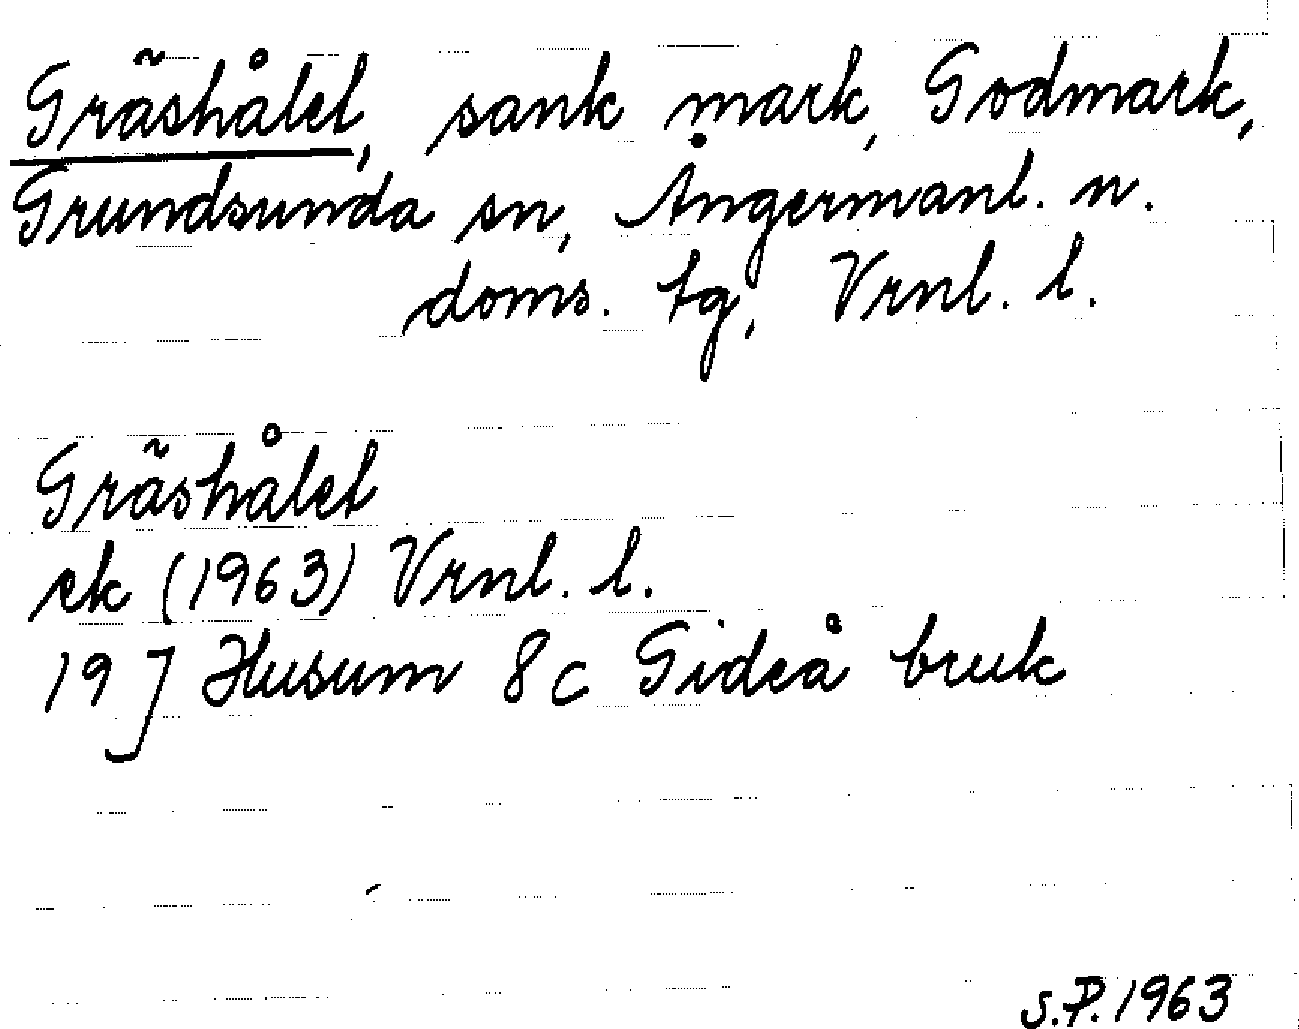 Gräshålet, sank mark, Godmark,
Grundsunda sn, Ångermanl. n.
doms. tg, Vrnl. l.
Gräshålet
ek (1963) Vrnl. l.
19 J Husum 8c Gideå bruk
S.P. 1963